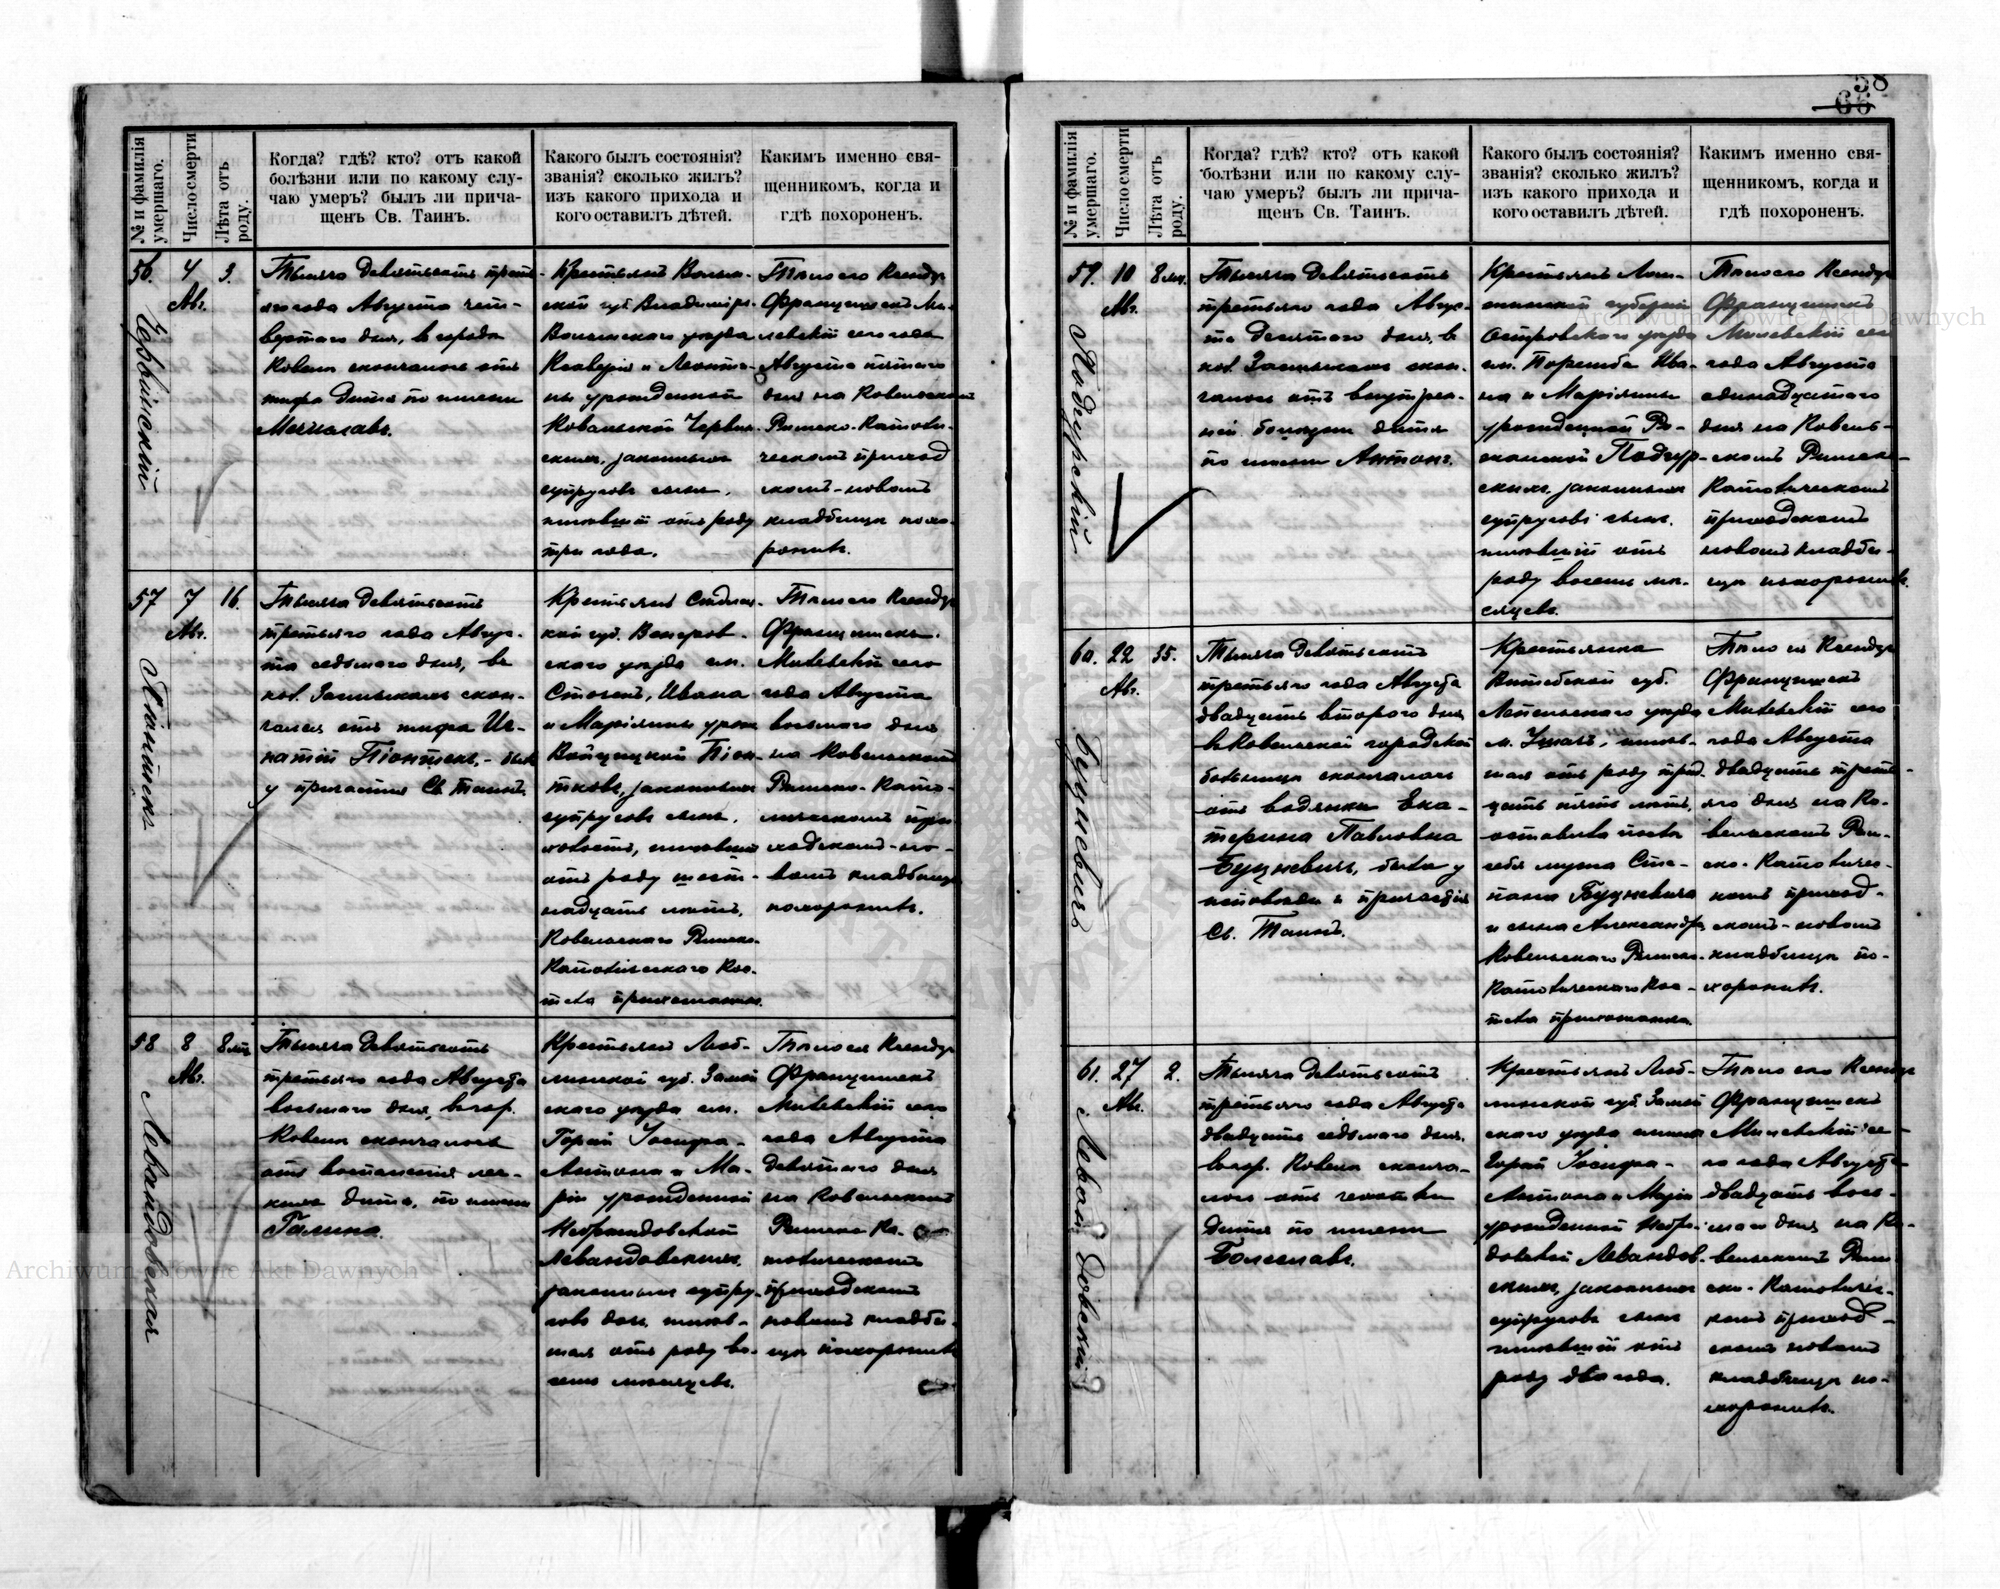 58
66
№ и фамилія умершаго.
Число смерти
Лѣта отъ роду.
Когда? гдѣ? кто? отъ какой
болѣзни или по какому слу-
чаю умеръ? былъ ли прича-
щенъ Св. Таинъ.
Какого былъ состоянія?
званія? сколько жилъ?
изъ какого прихода и
кого оставилъ дѣтей.
Какимъ именно свя-
щенникомъ, когда и
гдѣ похороненъ.
56.
4
Авг.
3.
Червинскій
Тысяча девятьсотъ треть-
яго года Августа чет-
вертаго дня, въ городѣ
Ковелѣ скончалось отъ
тифа дитя по имени
Мечиславъ.
Крестьянъ Волын-
ской губ. Владиміръ-
Волынскаго уѣзда
Ксаверія и Леонти-
ны урожденной
Ковальской Червин-
скихъ, законныхъ
супруговъ сынъ,
жившій отъ роду
три года.
Тѣло его Ксендзъ
Францишекъ Ми-
левскій сего года
Августа пятаго
дня на Ковельскомъ
Римско-Католи-
ческомъ приход
скомъ-новомъ
кладбищѣ похо-
ронилъ.
57.
7
Авг.
16.
Піонтекъ
Тысяча девятьсотъ
третьяго года Авгус-
та седьмаго дня, въ
кол. Засмыкахъ скон-
чался отъ тифа Иг-
натій Піонтекъ, - былъ
у причастія Св. Таинъ.
Крестьянъ Сѣдлец-
кой губ. Венгров-
скаго уѣзда гм.
Сточекъ, Ивана
и Маріянны урож
Войцицкой Піон-
тковъ, законныхъ
супруговъ сынъ,
холостъ, жившій
отъ роду шест-
надцать лѣтъ,
Ковельскаго Римско-
Католическаго Кос-
тела прихожанинъ.
Тѣло его Ксендзъ
Францишекъ
Милевскій сего
года Августа
восьмаго дня
на Ковельскомъ
Римско-Като-
лическомъ при
ходскомъ-но-
вомъ кладбищѣ
похоронилъ.
58
8
Авг.
8 мц.
Левандовская
Тысяча девятьсотъ
третьяго года Августа
восьмаго дня, въ гор.
Ковелѣ скончалось
отъ воспаленія лег-
кихъ дитя, по имени
Галина.
Крестьянъ Люб-
линской губ. Замой
скаго уѣзда гм.
Горай Іосифа-
Антона и Ма-
ріи урожденной
Левандовскихъ,
законныхъ супру-
говъ дочь, жив-
шая отъ роду во-
семь мѣсяцевъ.
Тѣло ея Ксендзъ
Францишекъ
Милевскій сего
года Августа
девятаго дня
на Ковельскомъ
Римско-Ка-
толическомъ
приходскомъ
новомъ кладби-
щѣ похоронилъ
№ и фамилія умершаго.
Число смерти
Лѣта отъ роду.
Когда? гдѣ? кто? отъ какой
болѣзни или по какому слу-
чаю умеръ? былъ ли прича-
щенъ Св. Таинъ.
Какого былъ состоянія?
званія? сколько жилъ?
изъ какого прихода и
кого оставилъ дѣтей.
Какимъ именно свя-
щенникомъ, когда и
гдѣ похороненъ.
59.
10
Авг.
8 мц.
Подгурскій
Тысяча девятьсотъ
третьяго года Авгус-
та десятаго дня, въ
кол. Засмыкахъ скон-
чалось отъ внутрен-
ней болѣзни дитя
по имени Антонъ.
Крестьянъ Лом-
жинской губерніи
Островскаго уѣзда
гм. Поремба Ива-
на и Маріянны
урожденной Ро-
сканской Подгур-
скихъ, законныхъ
супруговъ сынъ,
жившій отъ
роду восемь мѣ-
сяцевъ.
Тѣло его Ксендзъ
Францишекъ
Милевскій сего
года Августа
одинадцатаго
дня на Ковель-
скомъ Римско-
Католическомъ
приходскомъ
новомъ кладби-
щѣ похоронилъ.
60.
22
Авг.
35.
Буцкевичъ
Тысяча девятьсотъ
третьяго года Августа
двадцать втораго дня
въ Ковельской городской
больницѣ скончалась
отъ водянки Ека-
терина Павловна
Буцкевичъ, была у
исповѣди и причастія
Св. Таинъ.
Крестьянка
Витебской губ.
Лепельскаго уѣзда
м. Ушачъ, жив-
шая отъ роду трид-
цать пять лѣтъ,
оставила послѣ
себя мужа Сте-
пана Буцкевича
и сына Александра
Ковельскаго Римско-
Католическаго Кос-
тела прихожанка.
Тѣло ея Ксендзъ
Францишекъ
Милевскій сего
года Августа
двадцать треть-
яго дня на Ко-
вельскомъ Рим-
ско-Католичес-
комъ приход-
скомъ-новомъ
кладбищѣ по-
хоронилъ.
61.
27
Авг.
2.
Левандовскій
Тысяча девятьсотъ
третьяго года Августа
двадцать седьмаго дня,
въ гор. Ковелѣ сконча-
лось отъ чахотки
дитя по имени
Болеславъ.
Крестьянъ Люб-
линской губ. Замой
скаго уѣзда гмины
Горай Іосифа-
Антона и Маріи
урожденной
Левандов-
скихъ, законныхъ
супруговъ сынъ
жившій отъ
роду два года.
Тѣло его Ксендзъ
Францишекъ
Милевскій се-
го года Августа
двадцать вось-
маго дня на Ко-
вельскомъ Рим-
ско-Католичес-
комъ приход-
скомъ новомъ
кладбищѣ по-
хоронилъ.
Archiwum Główne Akt Dawnych
Archiwum Główne Akt Dawnych